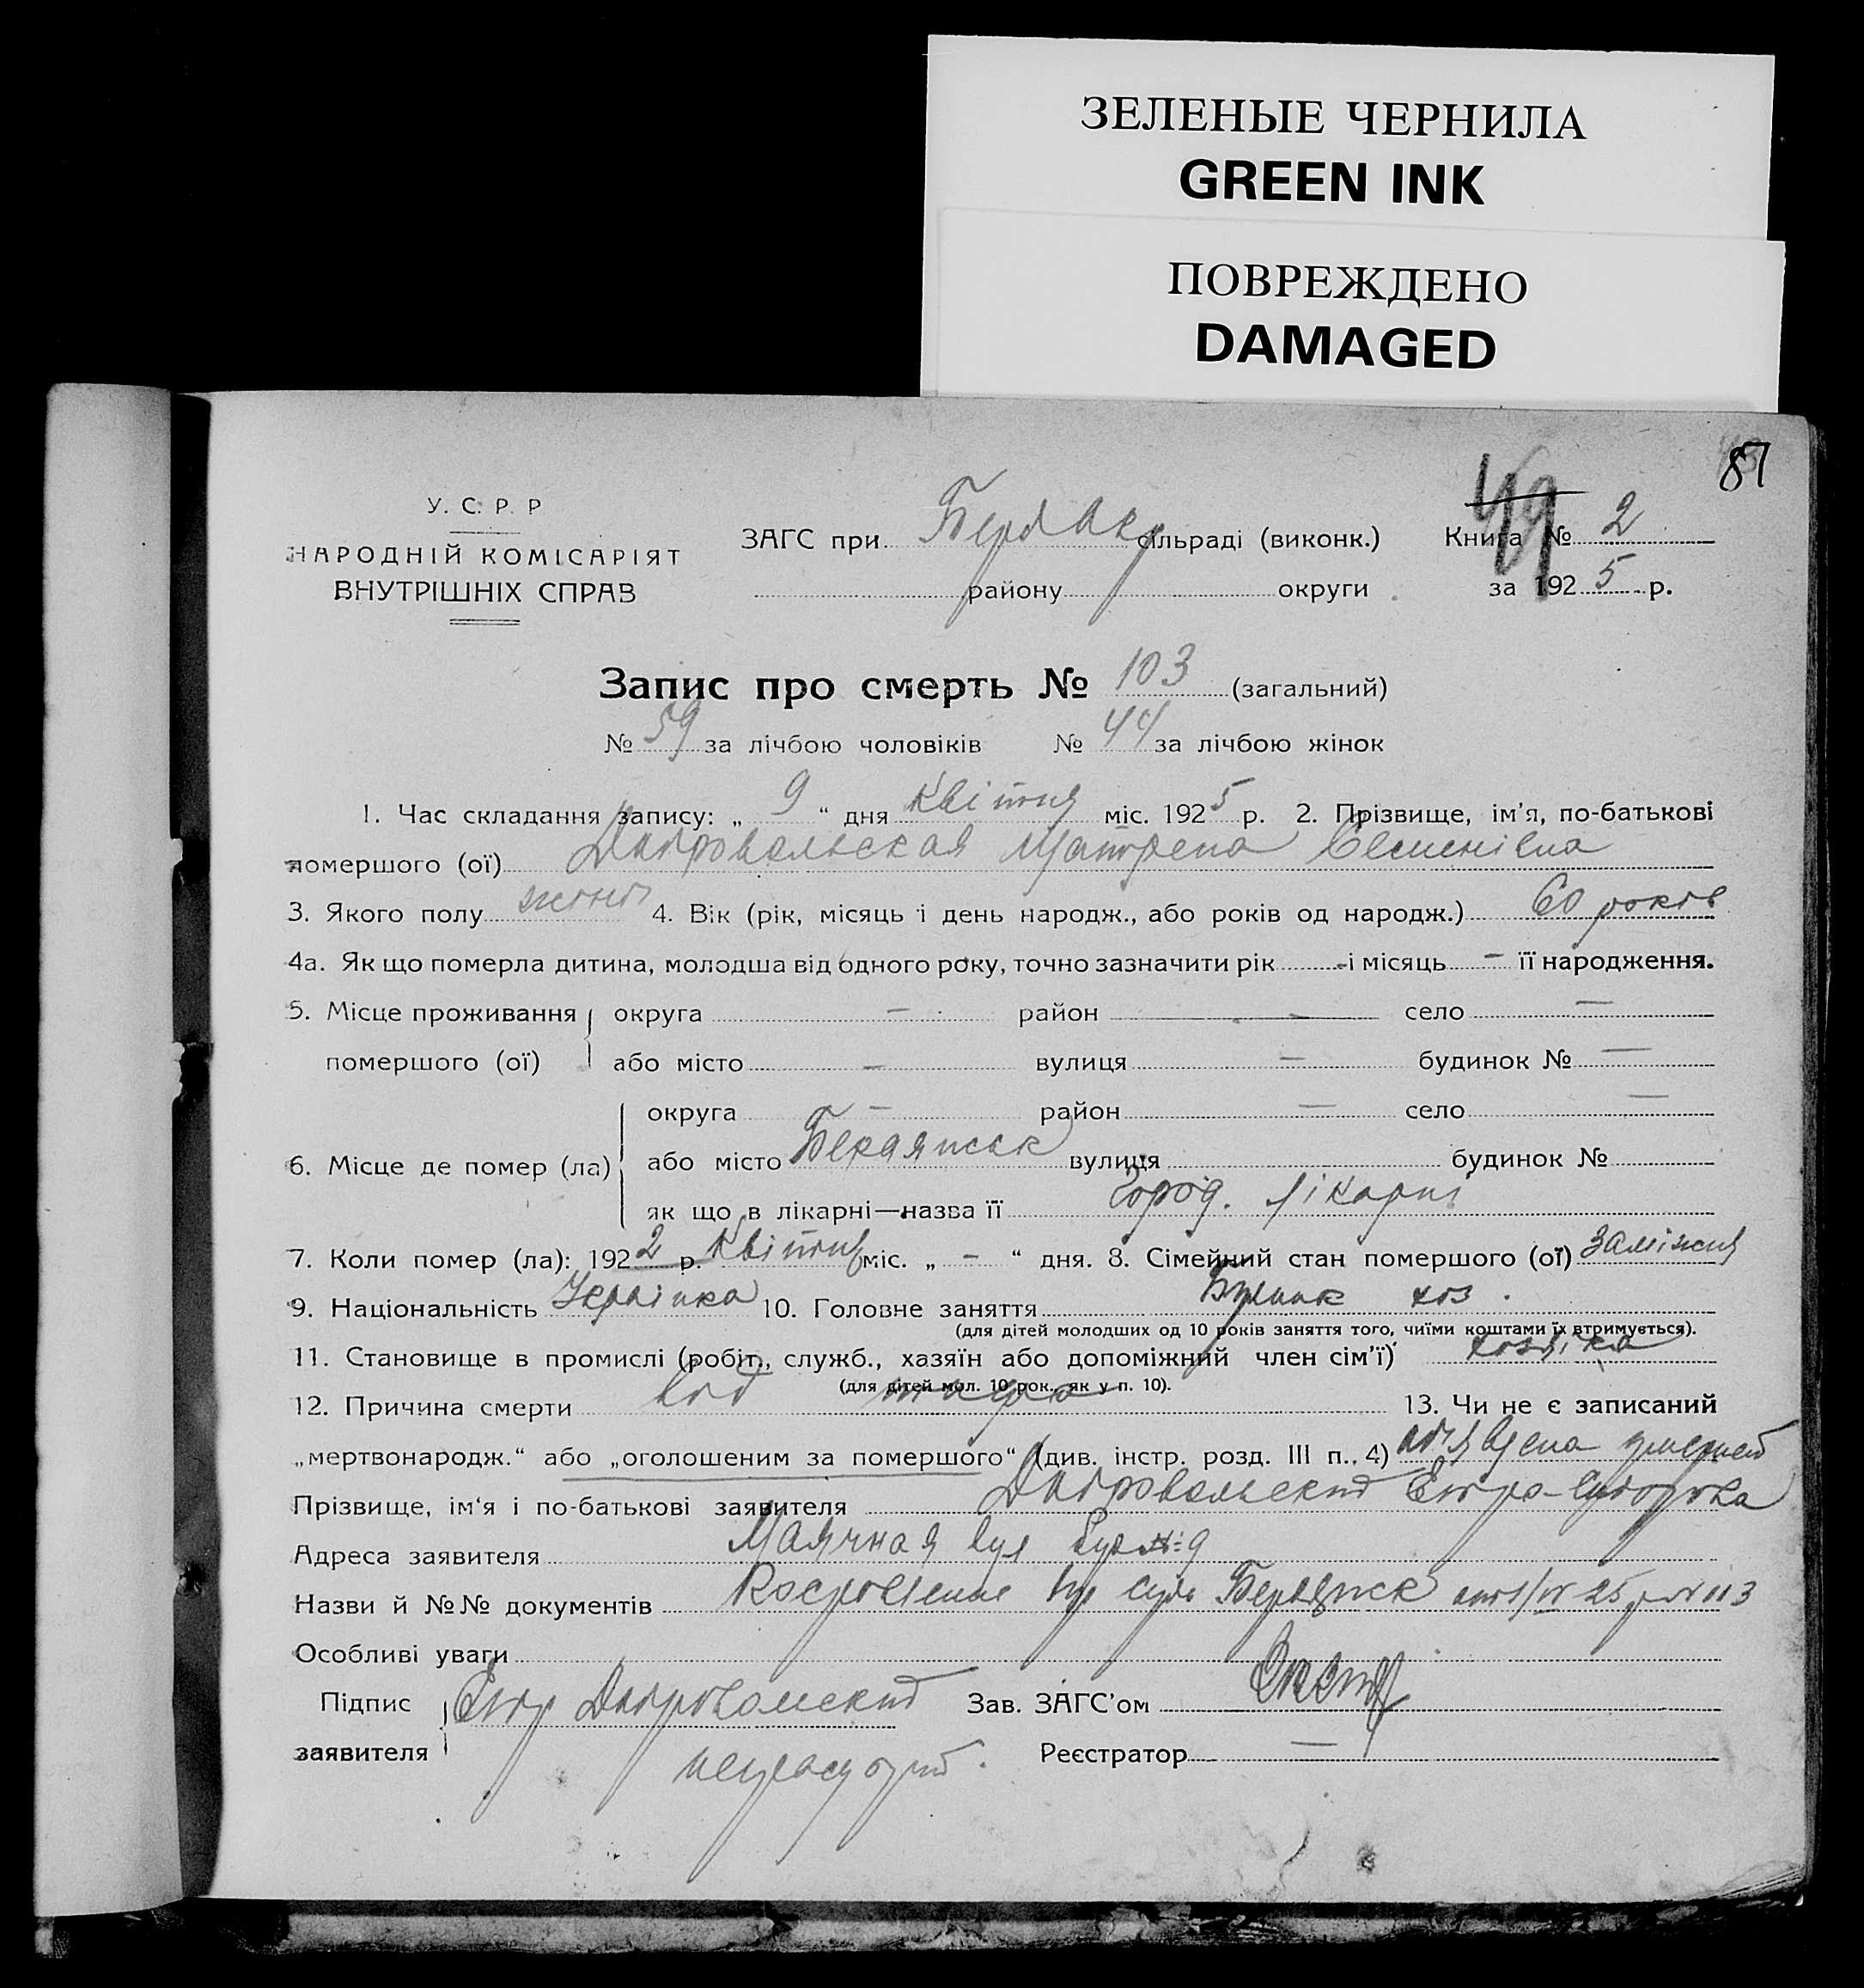 ЗЕЛЕНЫЕ ЧЕРНИЛА
GREEN INK
ПОВРЕЖДЕНО
DAMAGED
87
49
У. С. Р. Р
НАРОДНІЙ КОМІСАРІЯТ
ВНУТРІШНІХ СПРАВ
ЗАГС при сільраді (виконк.) Книга № 2
району округи за 1925 р.
Запис про смерть № 103 (загальний)
№ 59 за лічбою чоловіків № 44 за лічбою жінок
1. Час складання запису: „ 9 “ дня Квітня міс. 1925 р. 2. Прізвище, ім'я, по-батькові
помершого (ої) Добровольская Матрена Семенівна
3. Якого полу жіноч 4. Вік (рік, місяць і день народж., або років од народж.) 60 років
4а. Як що померла дитина, молодша від одного року, точно зазначити рік - і місяць - її народження.
5. Місце проживання округа — район — село —
помершого (ої) або місто — вулиця — будинок № —
округа — район — село —
6. Місце де помер (ла) або місто Бердянськ вулиця будинок №
як що в лікарні—назва її Город. лікарні
7. Коли помер (ла): 1922 р. Квітня міс. „ - “ дня. 8. Сімейний стан помершого (ої) Заміжня
9. Національність Українка 10. Головне заняття хоз.
(для дітей молодших од 10 років заняття того, чиїми коштами їх втримується).
11. Становище в промислі (робіт., служб., хазяїн або допоміжний член сім'ї) хозяйка
(для дітей мол. 10 рок., як у п. 10).
12. Причина смерти від тифа 13. Чи не є записаний
„мертвонародж.“ або „оголошеним за помершого“ (див. інстр. розд. III п., 4)
Прізвище, ім'я і по-батькові заявителя Добровольский Егор
Адреса заявителя Маячная вул буд № 9
Назви й №№ документів Бердянск 1/IV 25 р № 113
Особливі уваги
Підпис Егор Добровольский Зав. ЗАГС'ом
заявителя Реєстратор —